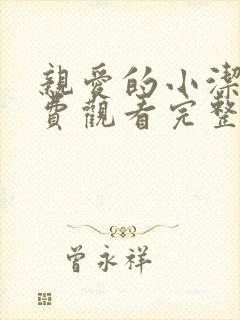 親愛的小潔
費觀看完整
曾永祥